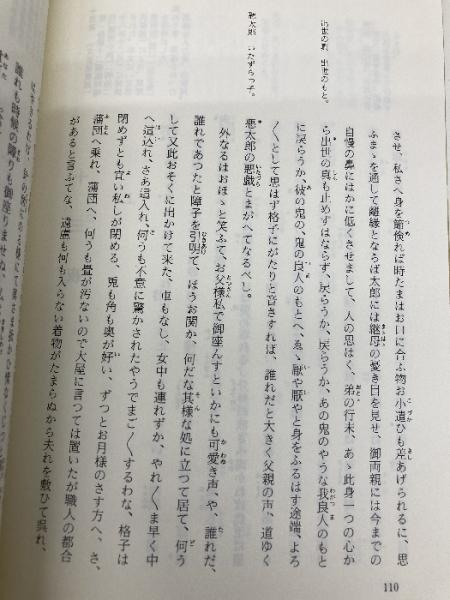 出世の真　出世のもと。
悪太郎　いたずらっ子。
させ、私さへ身を節倹れば時たまはお口に合ふ物お小遣ひも差あげられるに、思
ふまゝを通して離縁とならば太郎には継母の憂き目を見せ、御両親には今までの
自慢の鼻にはかに低くさせまして、人の思はく、弟の行末、あゝ此身一つの心か
ら出世の真も止めずはならず、戻らうか、戻らうか、あの鬼のやうな我良人のもと
に戻らうか、彼の鬼の、鬼の良人のもとへ、ゑゝ厭や厭やと身をふるはす途端、よろ
〳〵として思はず格子にがたりと音さすれば、誰れだと大きく父親の声、道ゆく
悪太郎の悪戯とまがへてなるべし。
外なるはおほゝと笑ふて、お父様私で御座んすといかにも可愛き声、や、誰れだ、
誰れであつたと障子を引明て、ほうお関か、何だな其様な処に立つて居て、何う
して又此おそくに出かけて来た、車もなし、女中も連れずか、やれ〳〵ま早く中
へ這入れ、さあ這入れ、何うも不意に驚かされたやうでまご〳〵するわな、格子は
閉めずとも宜い私しが閉める、兎も角も奥が好い、ずつとお月様のさす方へ、さ、
蒲団へ乗れ、蒲団へ、何うも畳が汚ないので大屋に言つては置いたが職人の都合
があると言ふてな、遠慮も何も入らない着物がたまらぬから夫れを敷ひて呉れ、
110
誰れも時候の障りも御座りませぬ、私